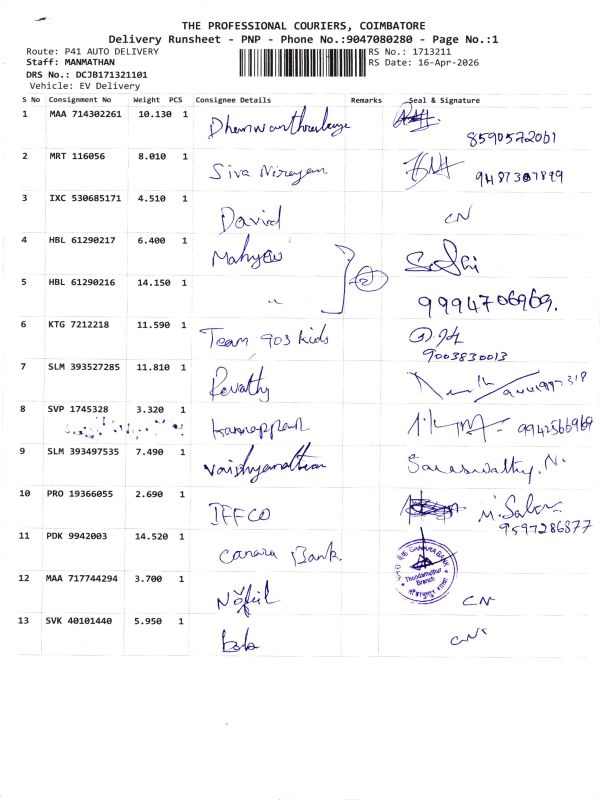 THE PROFESSIONAL COURIERS, COIMBATORE
Delivery Runsheet - PNP - Phone No.:9047080280 - Page No.:1
Route: P41 AUTO DELIVERY RS No.: 1713211
Staff: MANMATHAN RS Date: 16-Apr-2026
DRS No.: DCJB171321101
Vehicle: EV Delivery
S No Consignment No Weight PCS Consignee Details Remarks Seal & Signature
1 MAA 714302261 10.130 1
8590572061
2 MRT 116056 8.010 1 Siva Nirayan
9487307899
3 IXC 530685171 4.510 1 David CN
4 HBL 61290217 6.400 1
5 HBL 61290216 14.150 1 "
9994706969.
6 KTG 7212218 11.590 1 Team 903 kids
9003830013
7 SLM 393527285 11.810 1 Revathy
8 SVP 1745328 3.320 1 9942566969
9 SLM 393497535 7.490 1 Saraswathy. N.
10 PRO 19366055 2.690 1 IFFCO
9597286877
11 PDK 9942003 14.520 1 Canara Bank
CANARA BANK
Thondamuthur
Branch
12 MAA 717744294 3.700 1 CN
13 SVK 40101440 5.950 1 CN